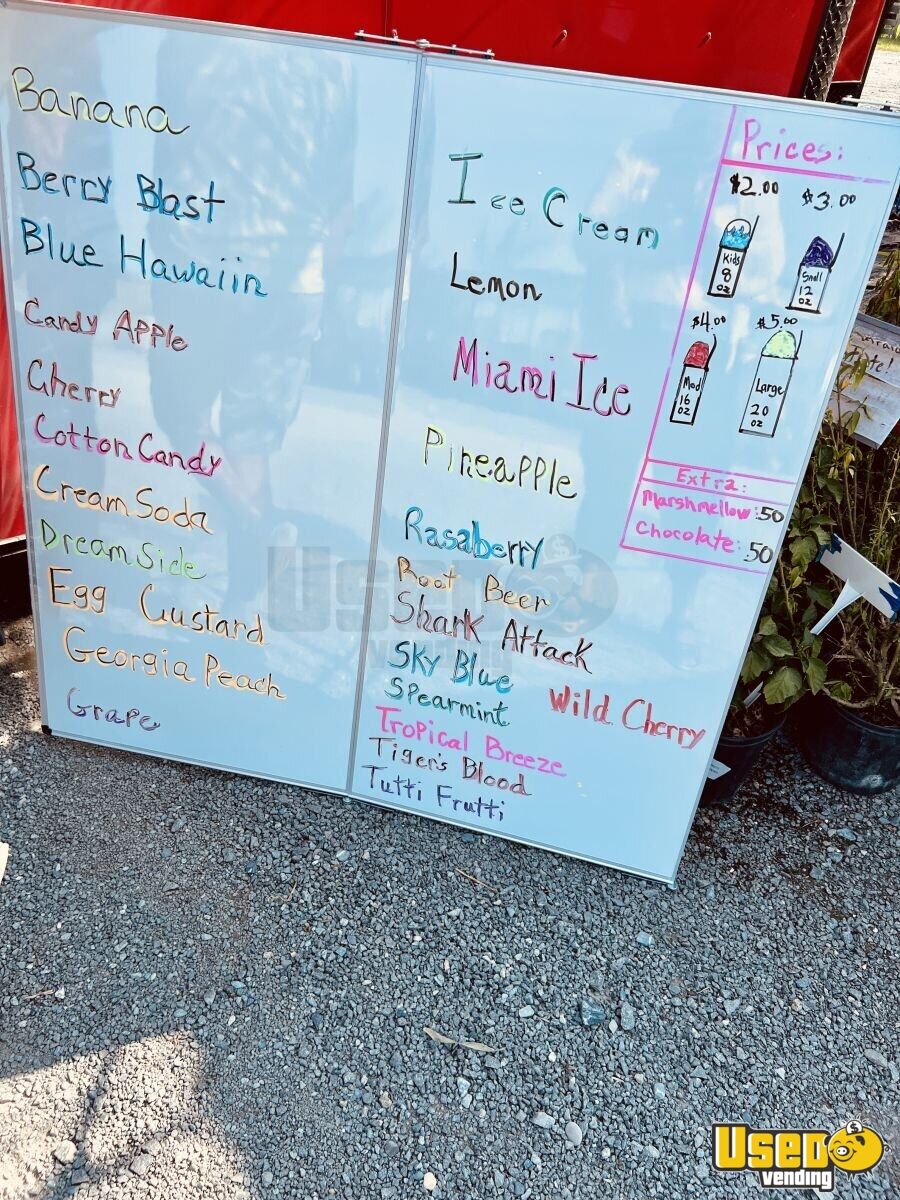 Banana
Berry Blast
Blue Hawaiin
Candy Apple
Cherry
Cotton Candy
Cream Soda
Dream Side
Egg Custard
Georgia Peach
Grape
Ice Cream
Lemon
Miami Ice
Pineapple
Rasaberry
Root Beer
Shark Attack
Sky Blue
Spearmint
Wild Cherry
Tropical Breeze
Tiger's Blood
Tutti Frutti
Prices:
$2.00 $3.00
Kids
8
oz
Small
12
oz
$4.00 $5.00
Med
16
oz
Large
20
oz
Extra:
Marshmellow: .50
Chocolate: .50
Used
Vending
USED
vending